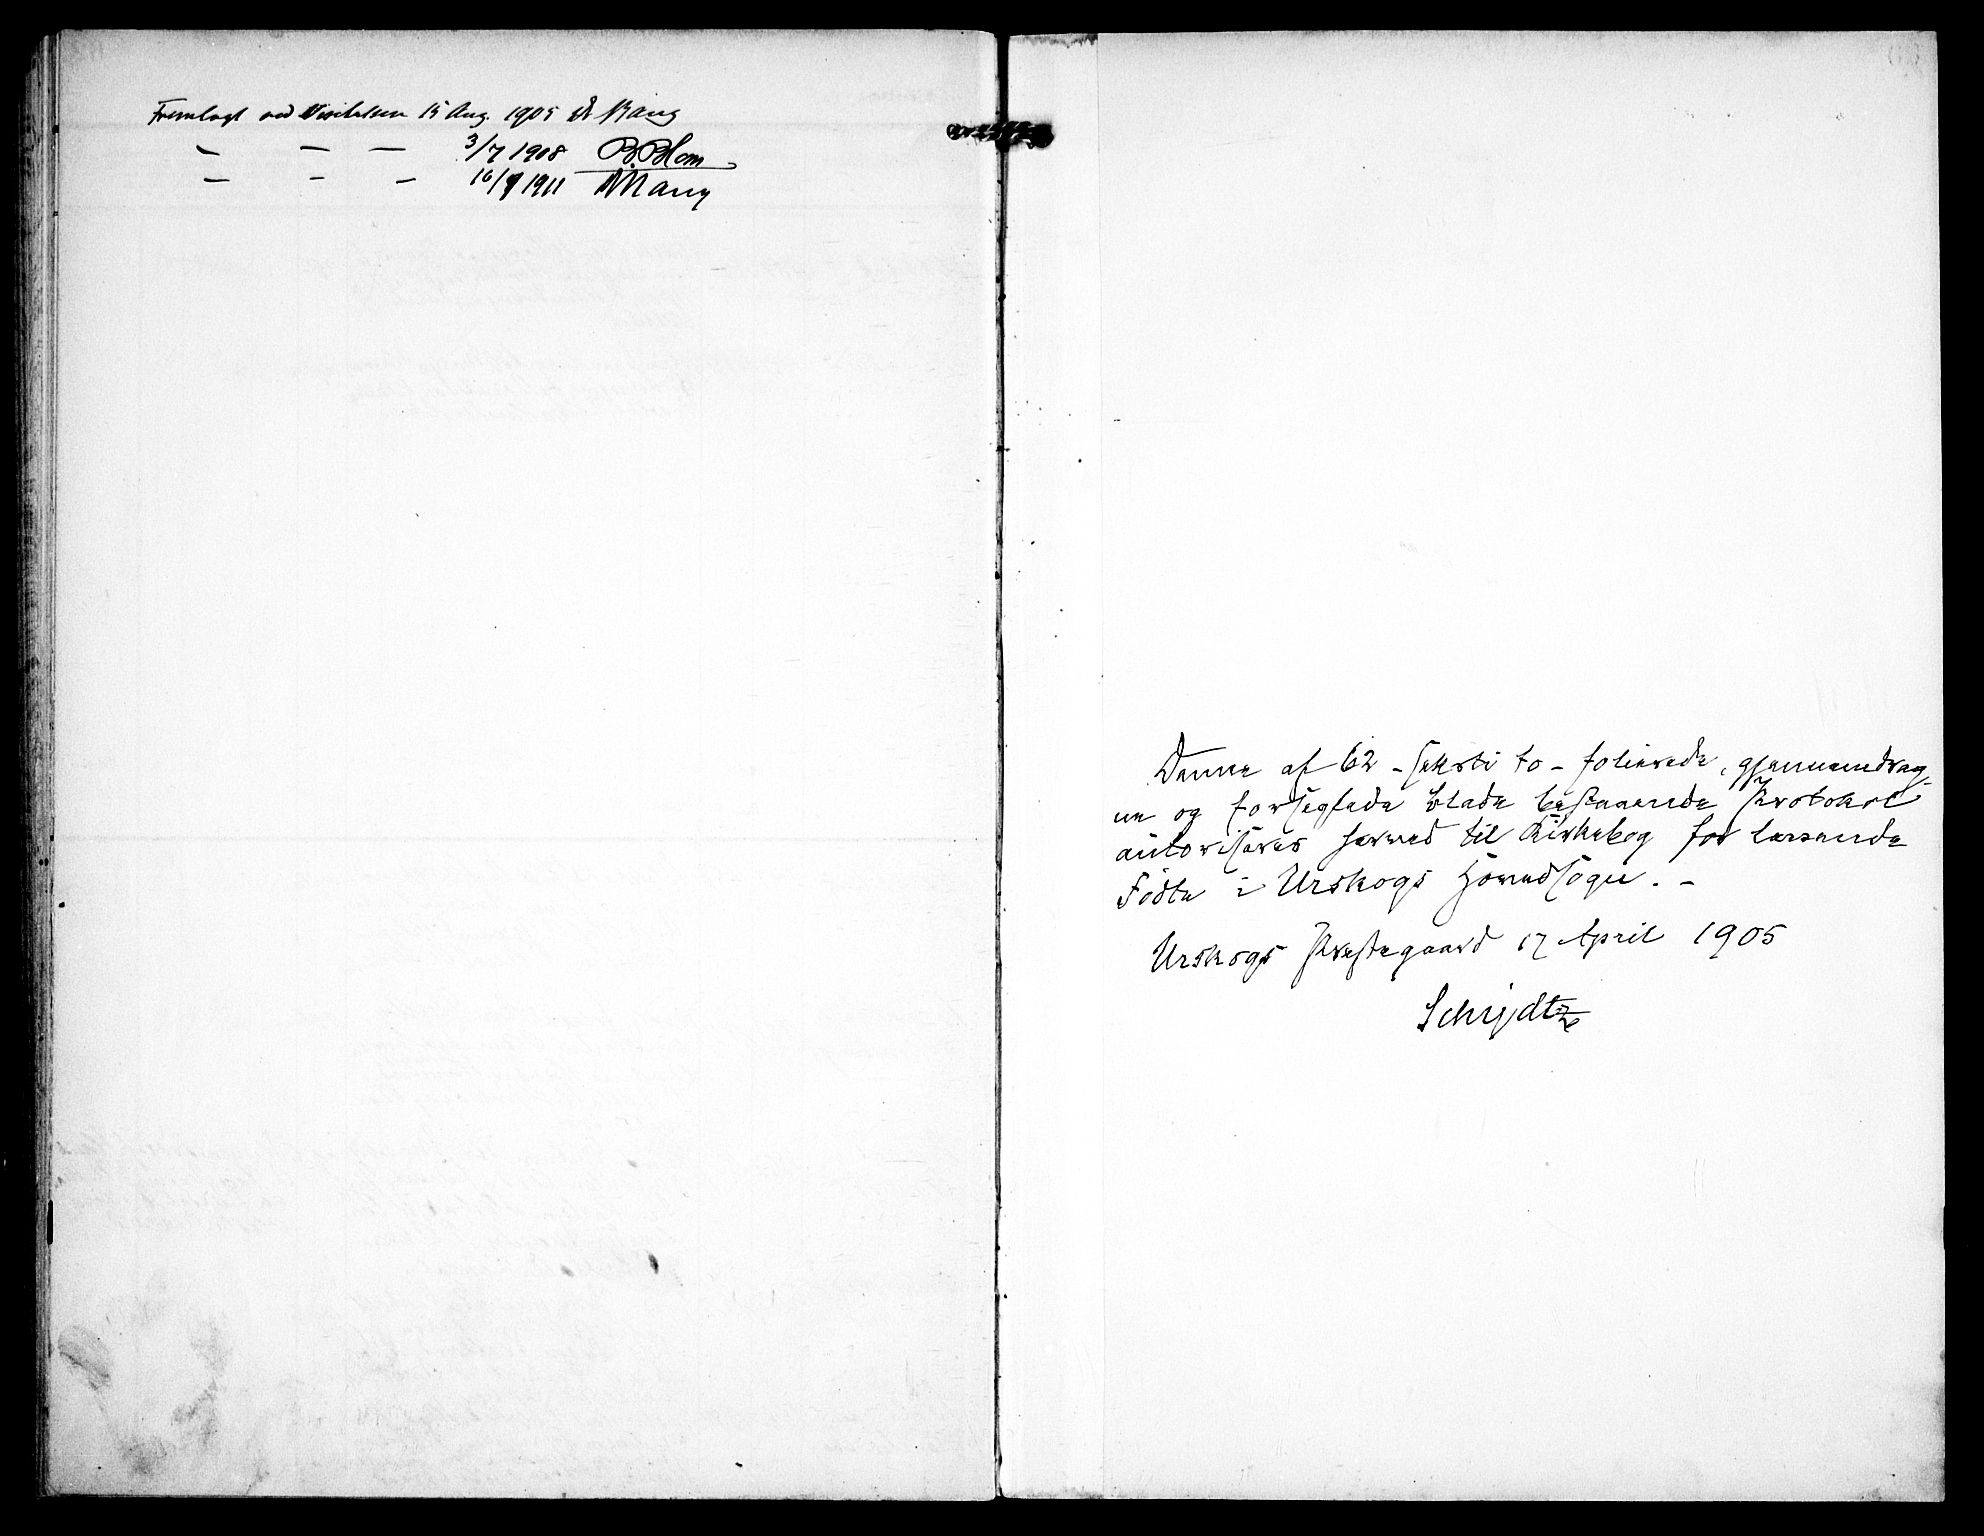 Fremlagt ved Visitatsen 15 Aug. 1905 Bang
— — — 3/7 1908 B. Blom
— — — 16/9 1911 Bang
Denne af 62 - seksti to - folierede, gjennemdrag-
ne og forseglede blade bestaaende Protokol
autoriseres herved til Kirkebog for levende
Fødte i Urskogs Hovedsogn. -
Urskogs Prestegaard 17 April 1905
Schjødtz